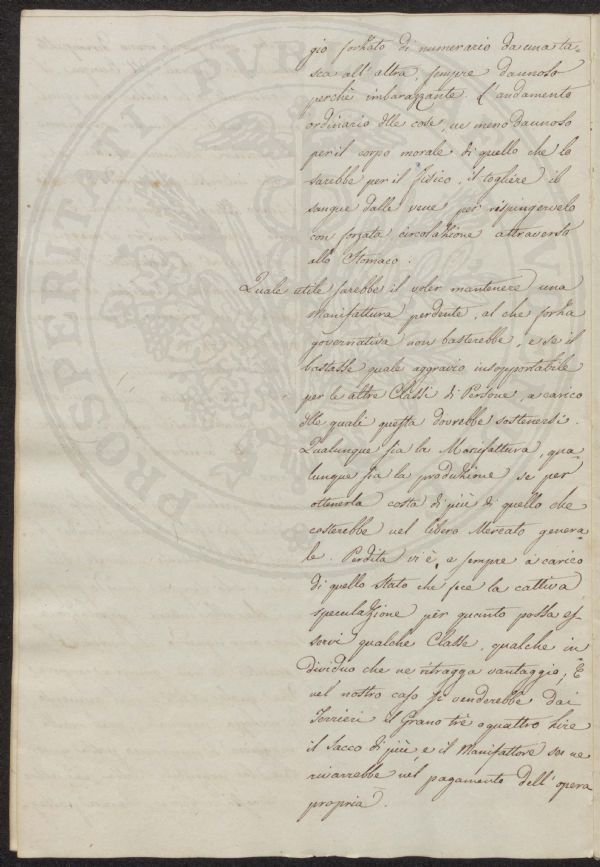 gio forzato di numerario da una ta-
sca all' altra, sempre dannoso
perchè imbarazzante l' andamento
ordinario delle cose, ne meno dannoso
per il corpo morale di quello che lo
sarebbe per il fisico, il togliere il
sangue dalle vene per rispingervelo
con forzata circolazione attraverso
allo Stomaco.
Quale utile sarebbe il voler mantenere una
Manifattura perdente, al che forza
governativa non basterebbe, e se il
bastasse quale aggravio insopportabile
per le altre Classi di Persone, a carico
delle quali questa dovrebbe sostenersi.
Qualunque sia la Manifattura, qua-
lunque sia la produzione se per
ottenerla costa di più di quello che
costerebbe nel libero Mercato genera-
le. Perdita vi è, e sempre a carico
di quello Stato che fece la cattiva
speculazione per quanto possa es-
servi qualche Classe, qualche in
dividuo che ne ritragga vantaggio, E
nel nostro caso si venderebbe dai
Terrieri il Grano trè o quattro Lire
il Sacco di più, e il Manifattore se ne
rivarrebbe nel pagamento dell' opera
propria.
PROSPERITATI PVB